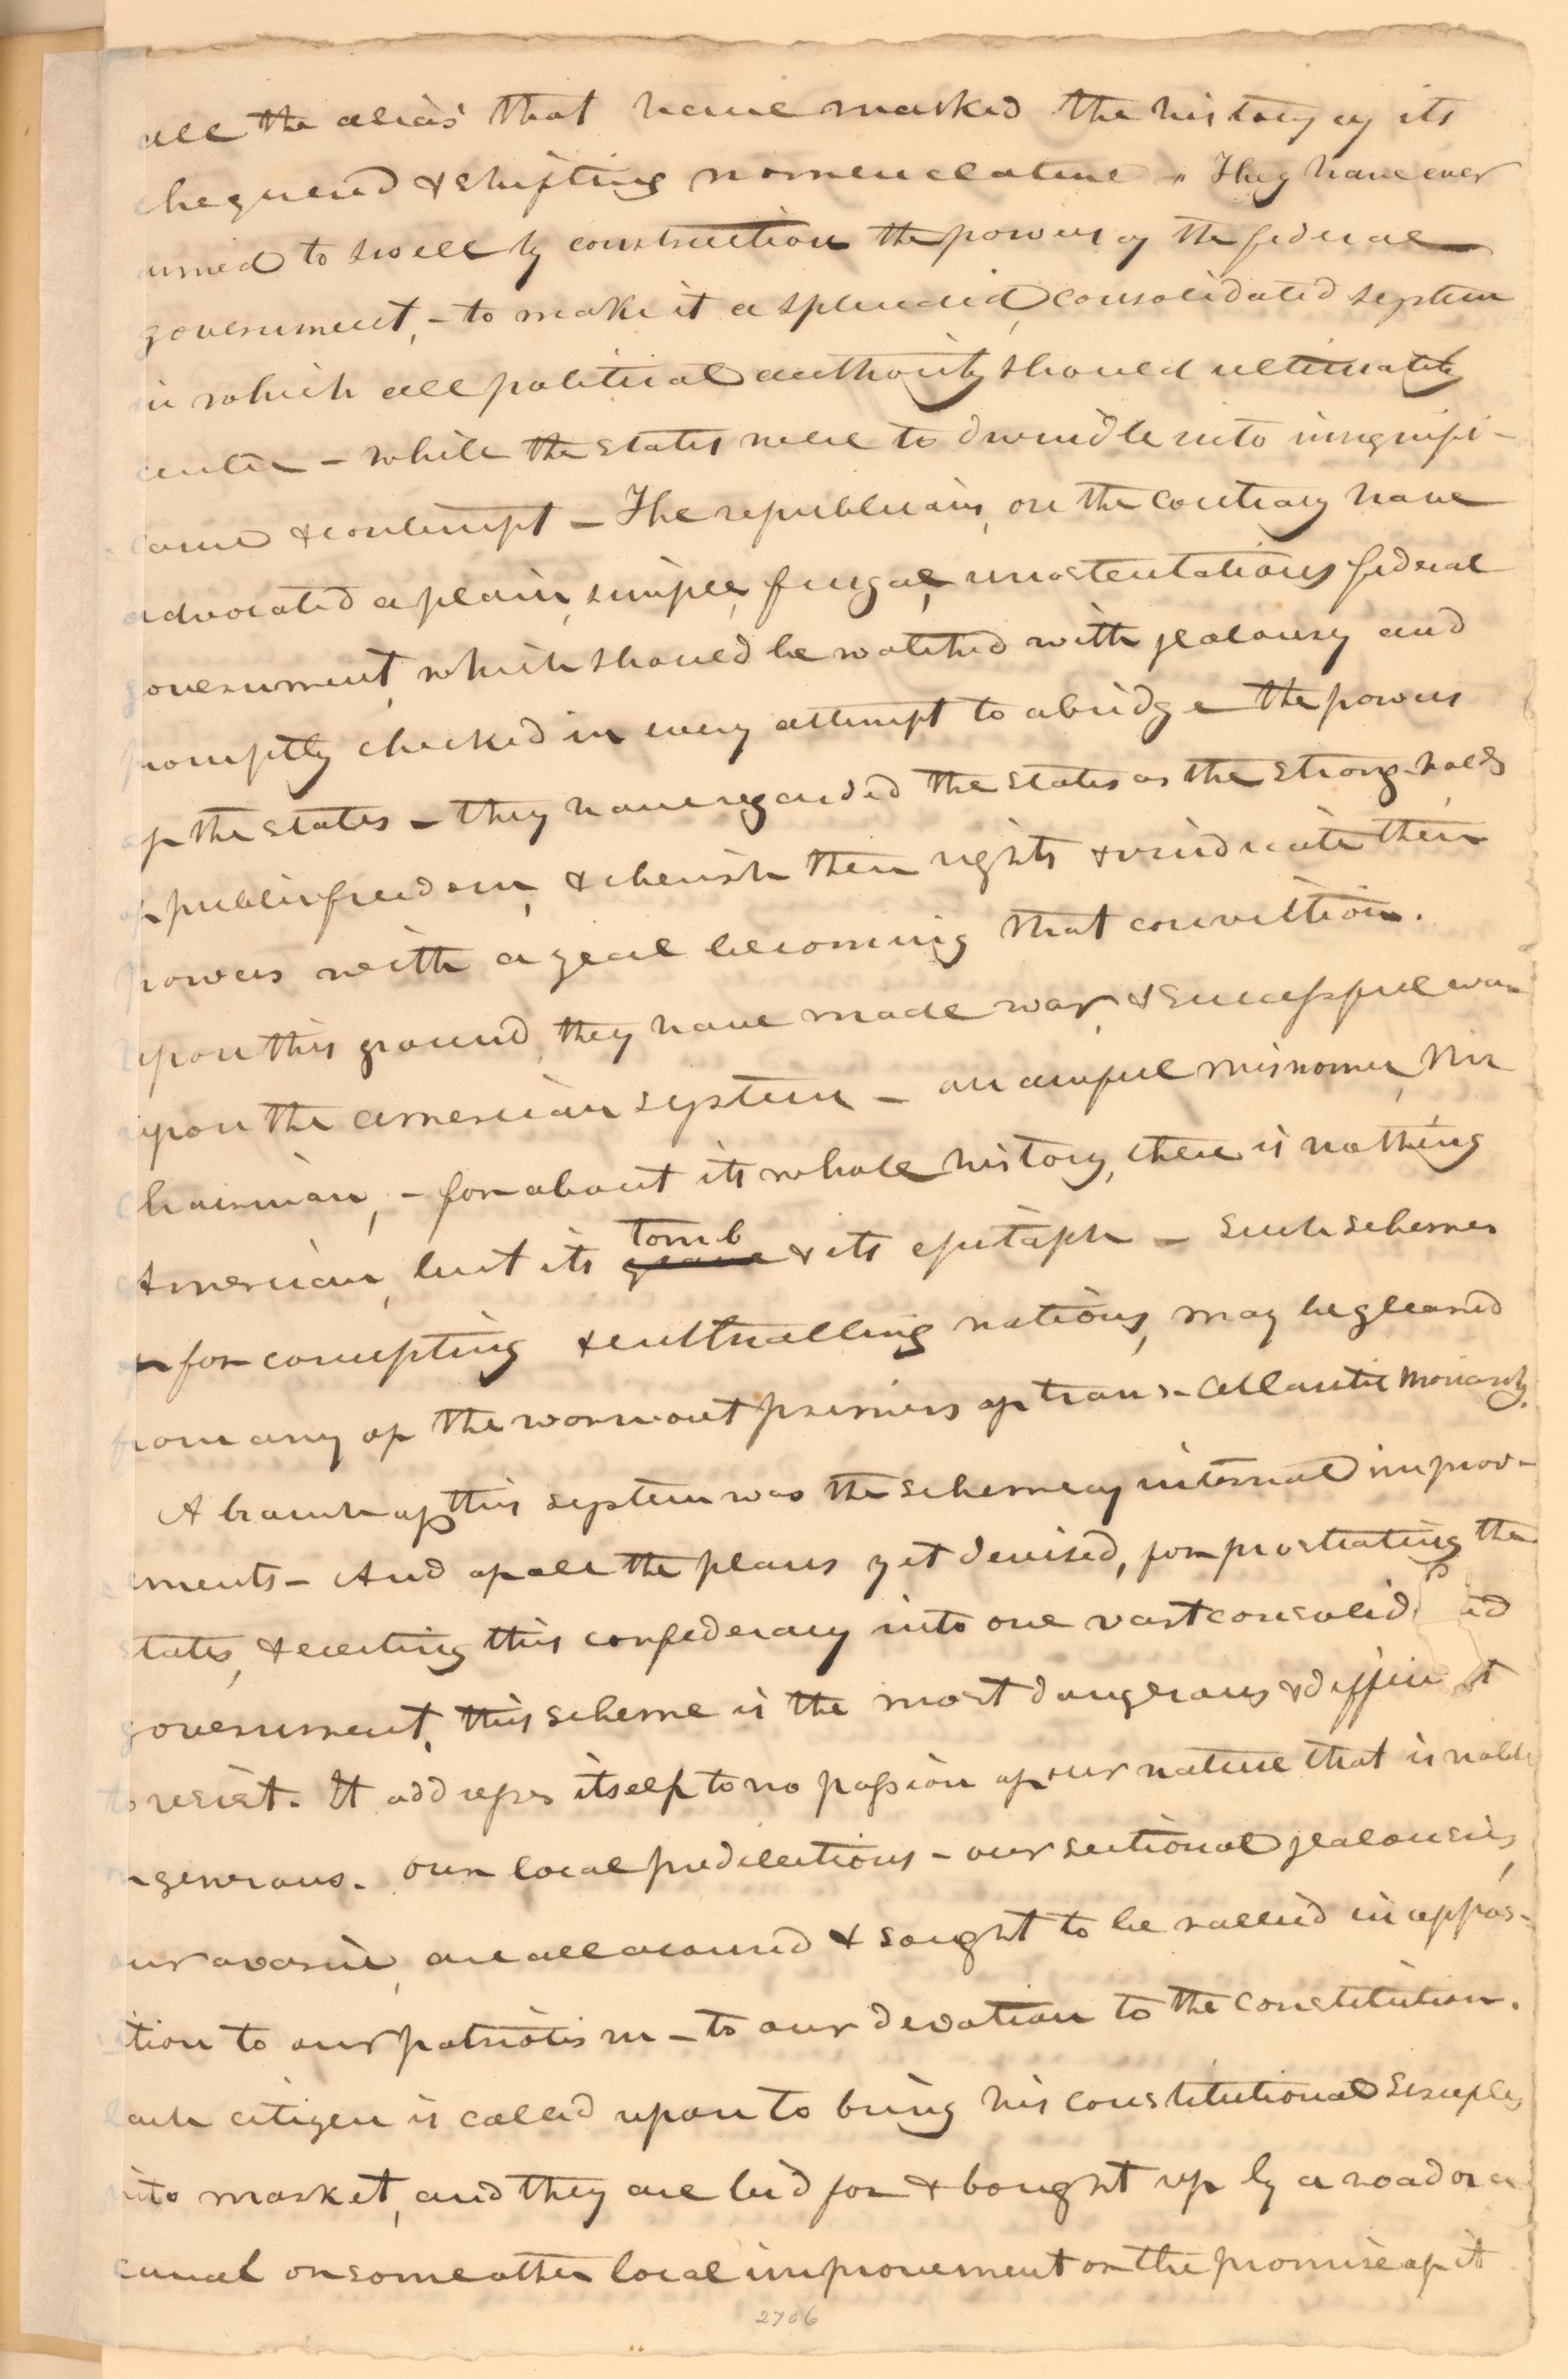 all the alias' that have marked the history of its
chequered & shifting nomenclature. They have ever
aimed to swell by construction the powers of the federal
government, - to make it a splendid, consolidated system
in which all political authority should ultimately
center - while the states were to dwindle into insignifi-
cance & contempt - The republicans, on the contrary have
advocated a plain, simple, frugal, unostentatious federal
government, which should be watched with jealousy and
promptly checked in every attempt to abridge the powers
of the states - they have regarded the states as the strong-holds
of public freedom, & cherish their rights & vindicate their
powers with a zeal becoming that conviction.
Upon this ground, they have made war, & successful war
upon the American system - an awful misnomer, Mr
Chairman, - for about its whole history, there is nothing
American, but its grave tomb & its epitaph - Such schemes
for corrupting & enthralling nations, may be gleaned
from any of the wornout primers of trans-Atlantic Monarchy.
A branch of this system was the scheme of internal improv-
ements - And of all the plans yet devised, for prostrating the
states, & erecting this confederacy into one vast consolid ed
government, this scheme is the most dangerous & diffic t
to resist. It addresses itself to no passion of our nature that is noble
or generous. Our local predilections - our sectional jealousies,
our avarice, are all aroused & sought to be rallied in oppos-
ition to our patriotism - to our devotion to the constitution.
Each citizen is called upon to bring his constitutional scruples
into market, and they are bid for & bought up by a road or a
canal or some other local improvement or the promise of it
2706